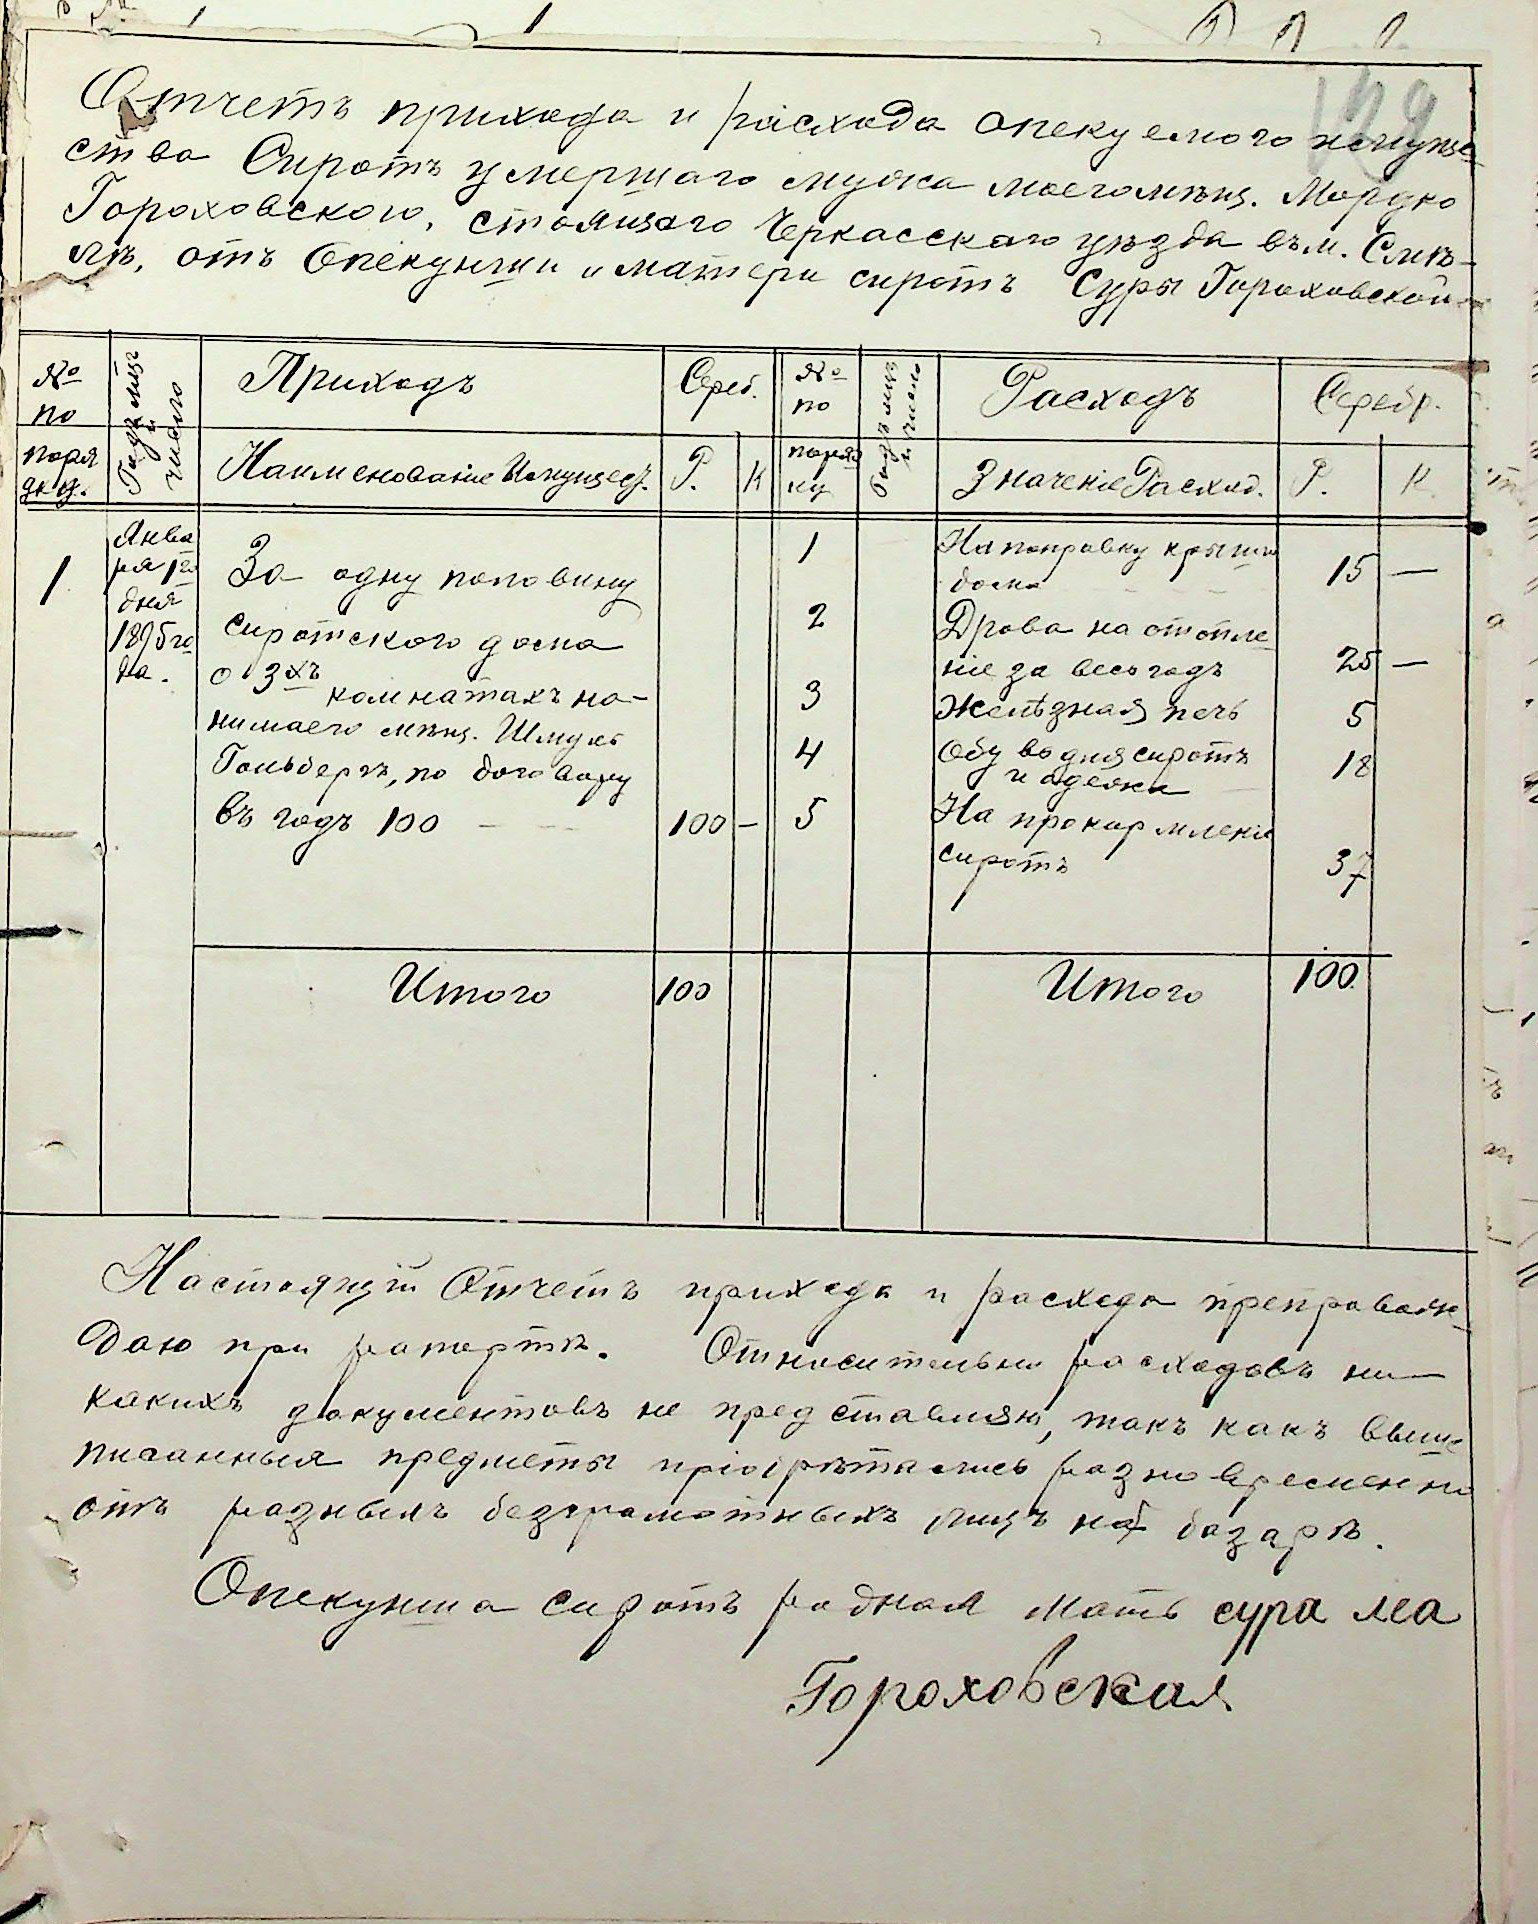 129
Отчетъ прихода и расхода опекуемого имуще
ства Сиротъ умершаго мужа моего мѣщ. Мордко
Гороховского, стоящаго Черкасскаго уѣзда въ м. Смѣ-
лѣ, отъ Опекунши и матери сиротъ Суры Гороховской
№ по порядку.
Годъ мѣц и число
Приходъ
Сереб.
№ по порядку
Годъ мѣц и число
Расходъ
Серебр.
Наименованіе Имущес.
Р.
К
Значеніе Расход.
Р.
К.
1
Янва
ря 1го
дня
1895 го
да.
За одну половину
сиротского дома
о 3хъ
комнатахъ на-
нимаего мѣщ. Шмуль
Гольбергъ, по договору
въ годъ 100 - - -
100 -
1
На поправку крыши
дома
15 —
2
Дрова на отопле
ніе за весь годъ
25 —
3
Желѣзная печь
5
4
Обувь для сиротъ
и одежи
18
5
На прокормленіе
сиротъ
37
Итого
100
Итого
100
Настоящій Отчетъ прихода и расхода препровож
даю при рапортѣ. Относительно расходовъ ни—
какихъ документовъ не представляю, такъ какъ выше
писанныя предметы пріобрѣтались разновременно
отъ разныхъ безграмотныхъ лицъ на базарѣ.
Опекунша сиротъ родная мать сура леа
Гороховская